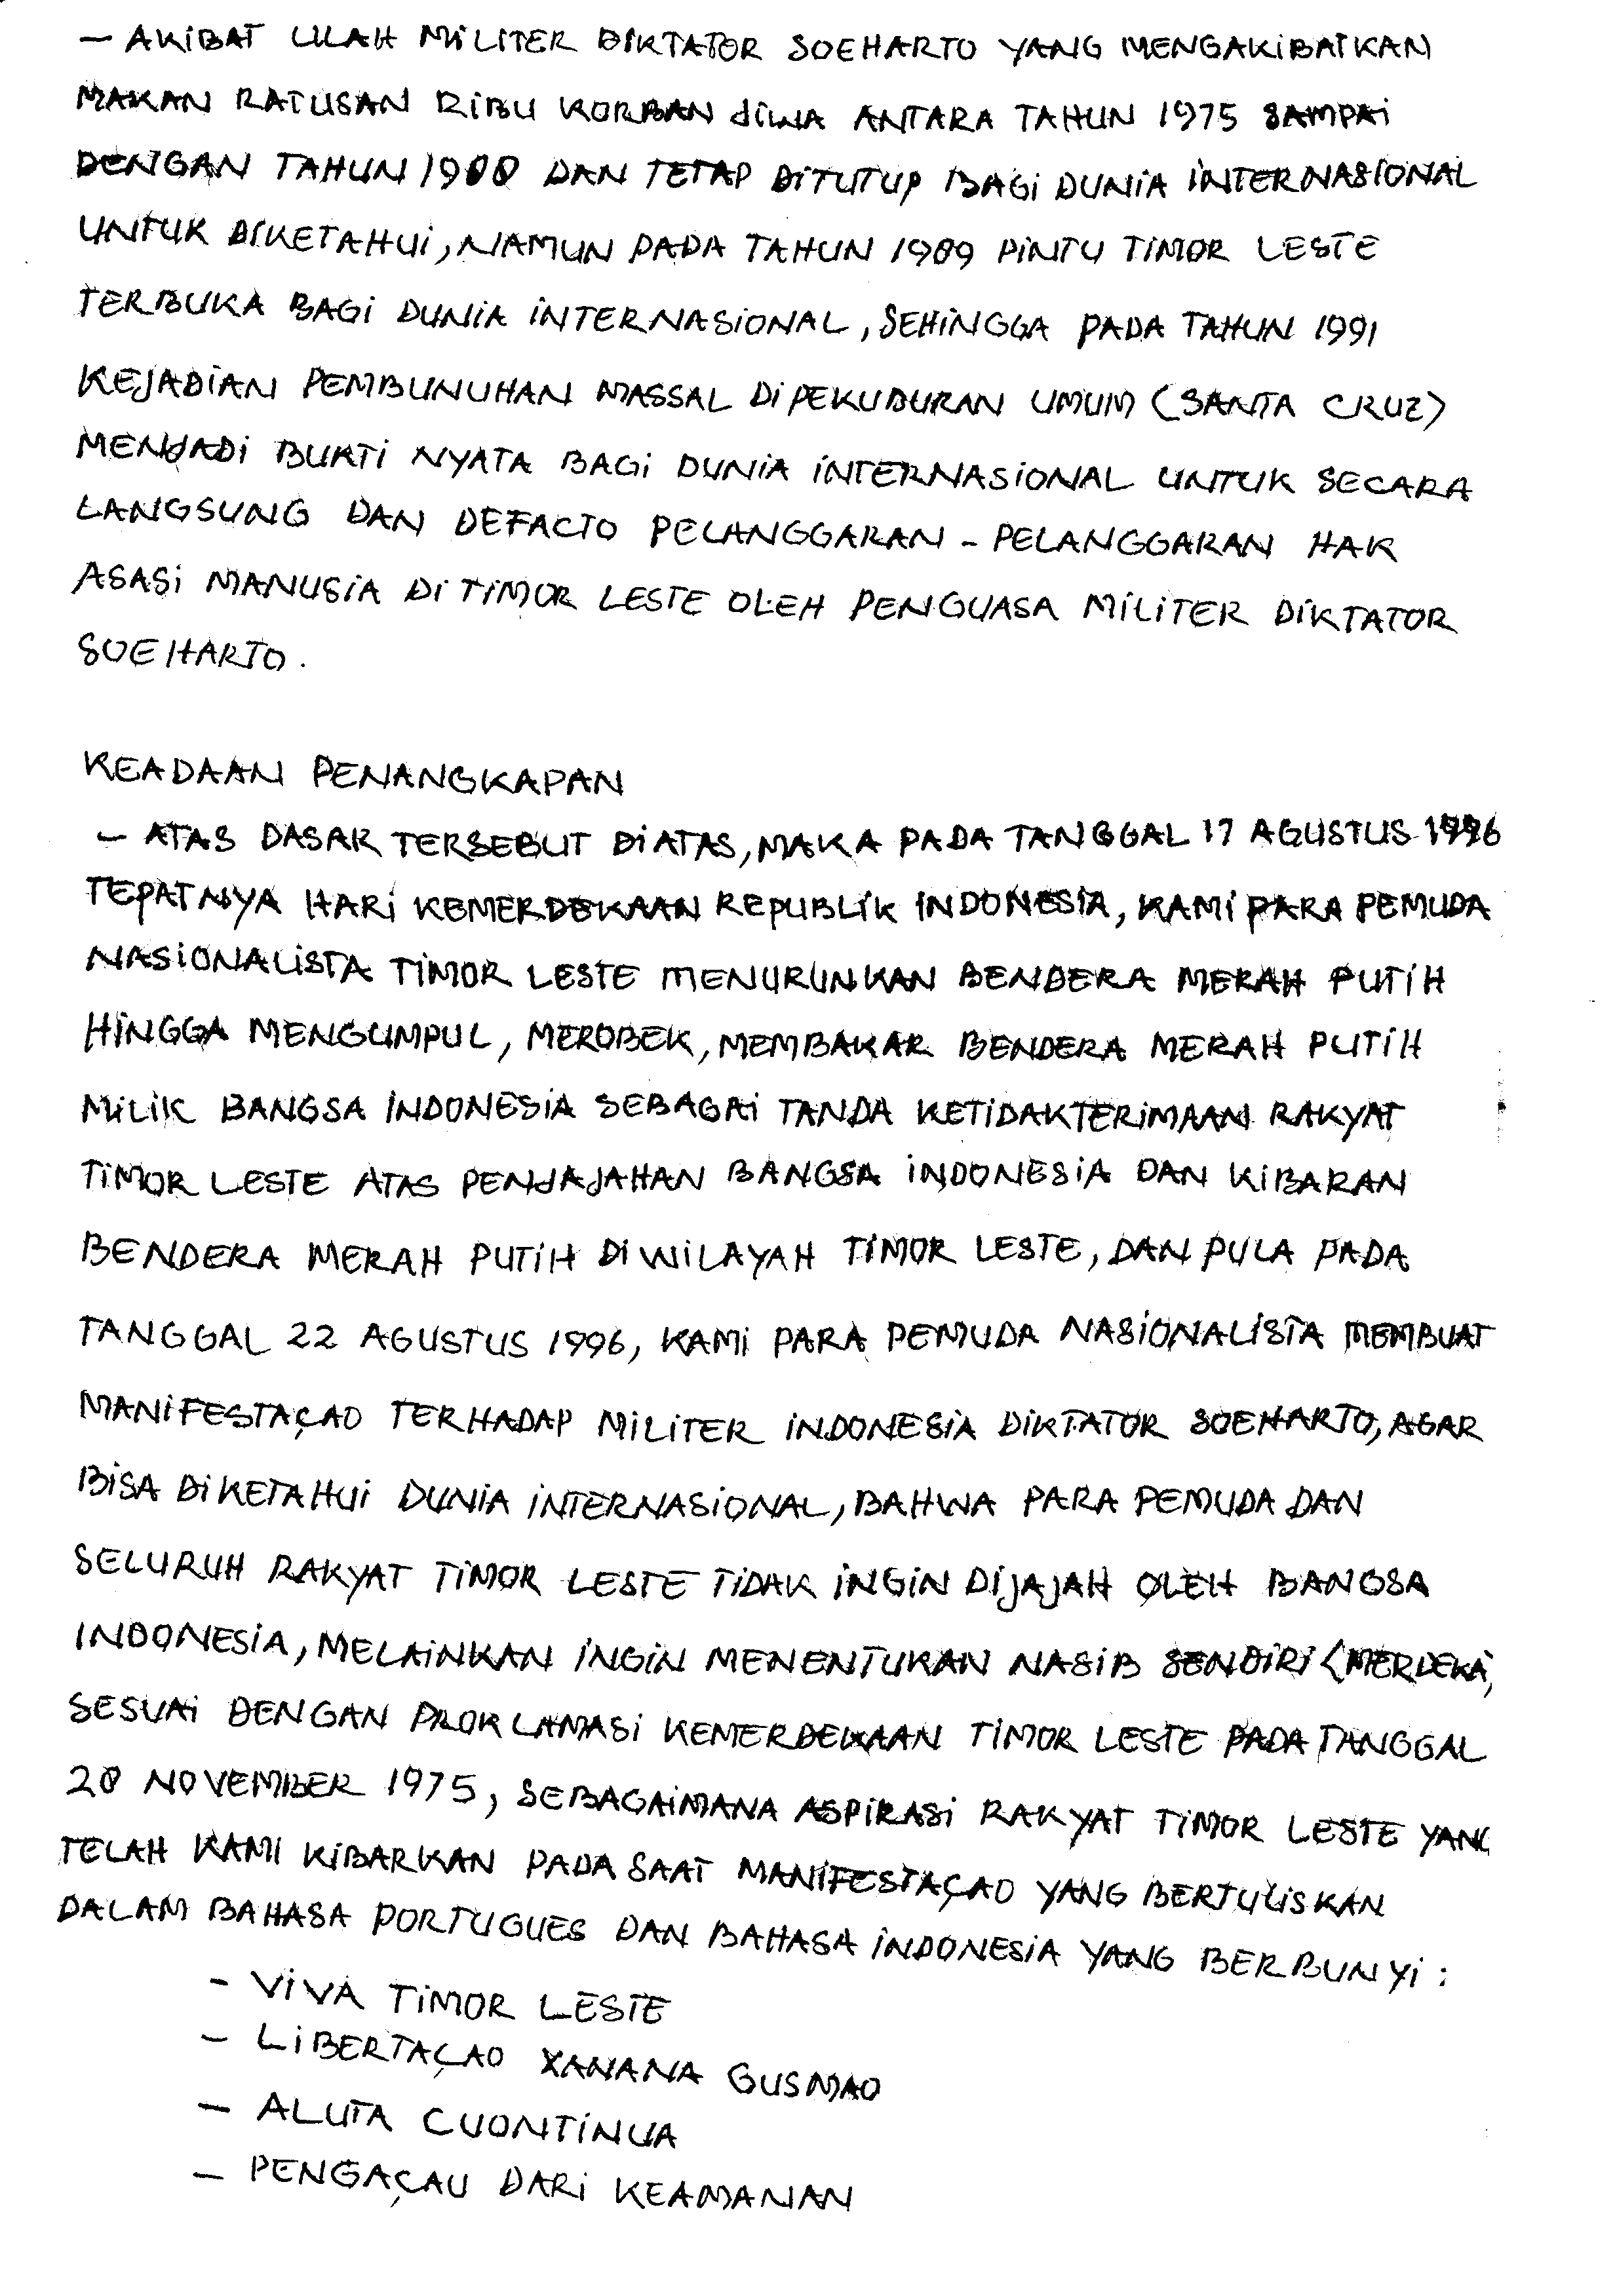 — AKIBAT ULAH MILITER DIKTATOR SOEHARTO YANG MENGAKIBATKAN
MAKAN RATUSAN RIBU KORBAN JIWA ANTARA TAHUN 1975 SAMPAI
DENGAN TAHUN 1988 DAN TETAP DITUTUP BAGI DUNIA INTERNASIONAL
UNTUK DIKETAHUI, NAMUN PADA TAHUN 1989 PINTU TIMOR LESTE
TERBUKA BAGI DUNIA INTERNASIONAL, SEHINGGA PADA TAHUN 1991
KEJADIAN PEMBUNUHAN MASSAL DI PEKUBURAN UMUM (SANTA CRUZ)
MENJADI BUKTI NYATA BAGI DUNIA INTERNASIONAL UNTUK SECARA
LANGSUNG DAN DEFACTO PELANGGARAN - PELANGGARAN HAK
ASASI MANUSIA DI TIMOR LESTE OLEH PENGUASA MILITER DIKTATOR
SOEHARTO.
KEADAAN PENANGKAPAN
— ATAS DASAR TERSEBUT DIATAS, MAKA PADA TANGGAL 17 AGUSTUS 1996
TEPATNYA HARI KEMERDEKAAN REPUBLIK INDONESIA, KAMI PARA PEMUDA
NASIONALISTA TIMOR LESTE MENURUNKAN BENDERA MERAH PUTIH
HINGGA MENGUMPUL, MEROBEK, MEMBAKAR BENDERA MERAH PUTIH
MILIK BANGSA INDONESIA SEBAGAI TANDA KETIDAKTERIMAAN RAKYAT
TIMOR LESTE ATAS PENJAJAHAN BANGSA INDONESIA DAN KIBARAN
BENDERA MERAH PUTIH DI WILAYAH TIMOR LESTE, DAN PULA PADA
TANGGAL 22 AGUSTUS 1996, KAMI PARA PEMUDA NASIONALISTA MEMBUAT
MANIFESTAÇAO TERHADAP MILITER INDONESIA DIKTATOR SOEHARTO, AGAR
BISA DIKETAHUI DUNIA INTERNASIONAL, BAHWA PARA PEMUDA DAN
SELURUH RAKYAT TIMOR LESTE TIDAK INGIN DIJAJAH OLEH BANGSA
INDONESIA, MELAINKAN INGIN MENENTUKAN NASIB SENDIRI (MERDEKA)
SESUAI DENGAN PROKLAMASI KEMERDEKAAN TIMOR LESTE PADA TANGGAL
28 NOVEMBER 1975, SEBAGAIMANA ASPIRASI RAKYAT TIMOR LESTE YANG
TELAH KAMI KIBARKAN PADA SAAT MANIFESTAÇAO YANG BERTULISKAN
DALAM BAHASA PORTUGUES DAN BAHASA INDONESIA YANG BERBUNYI :
- VIVA TIMOR LESTE
- LIBERTAÇAO XANANA GUSMAO
- ALUTA CUONTINUA
- PENGAÇAU DARI KEAMANAN